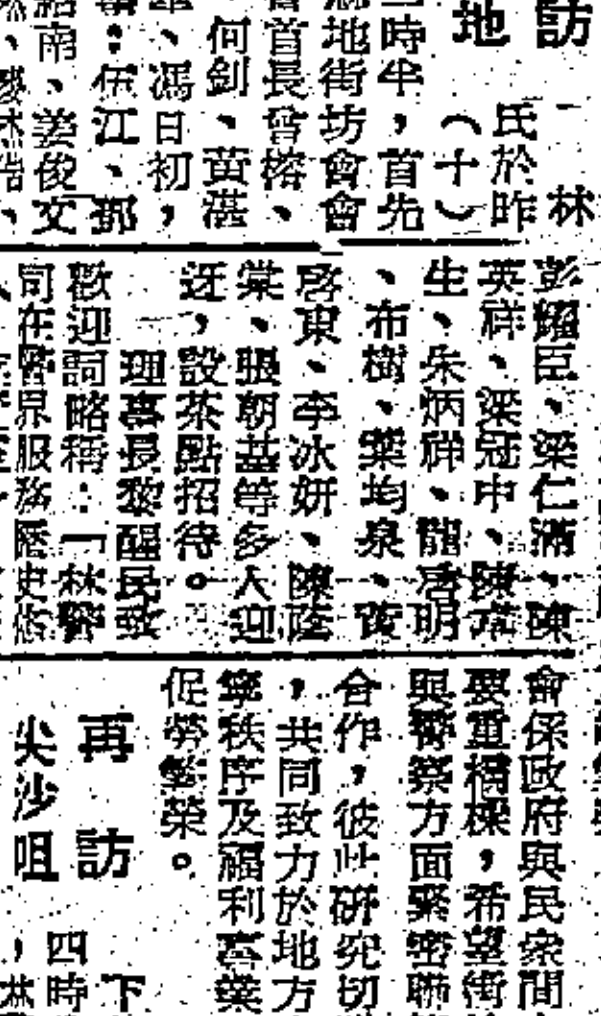 訪
地
林
氏於昨
（十）
時半，首先
地街坊會會
首長曾榕、
何劍、黄湛
、馮日初，
：伍江、鄧
南、姜俊文
彭耀臣、梁仁滿、陳
英祥、梁冠中、陳
生、朱炳祥、龍唐明
、布樹、葉均泉、黄
啓東、李冰妍、陳蔭
棠、張朝基等多人迎
迓，設茶點招待。
理事長黎醒民致
歡迎詞略稱：「林警
司在警界服務歷史悠
會係政府與民衆間
要重橋樑，希望街
與警察方面緊密聯
合作，彼此研究切
，共同致力於地方
寧秩序及福利事業
促勞繁榮。
再訪
尖沙咀
下
四時
，林